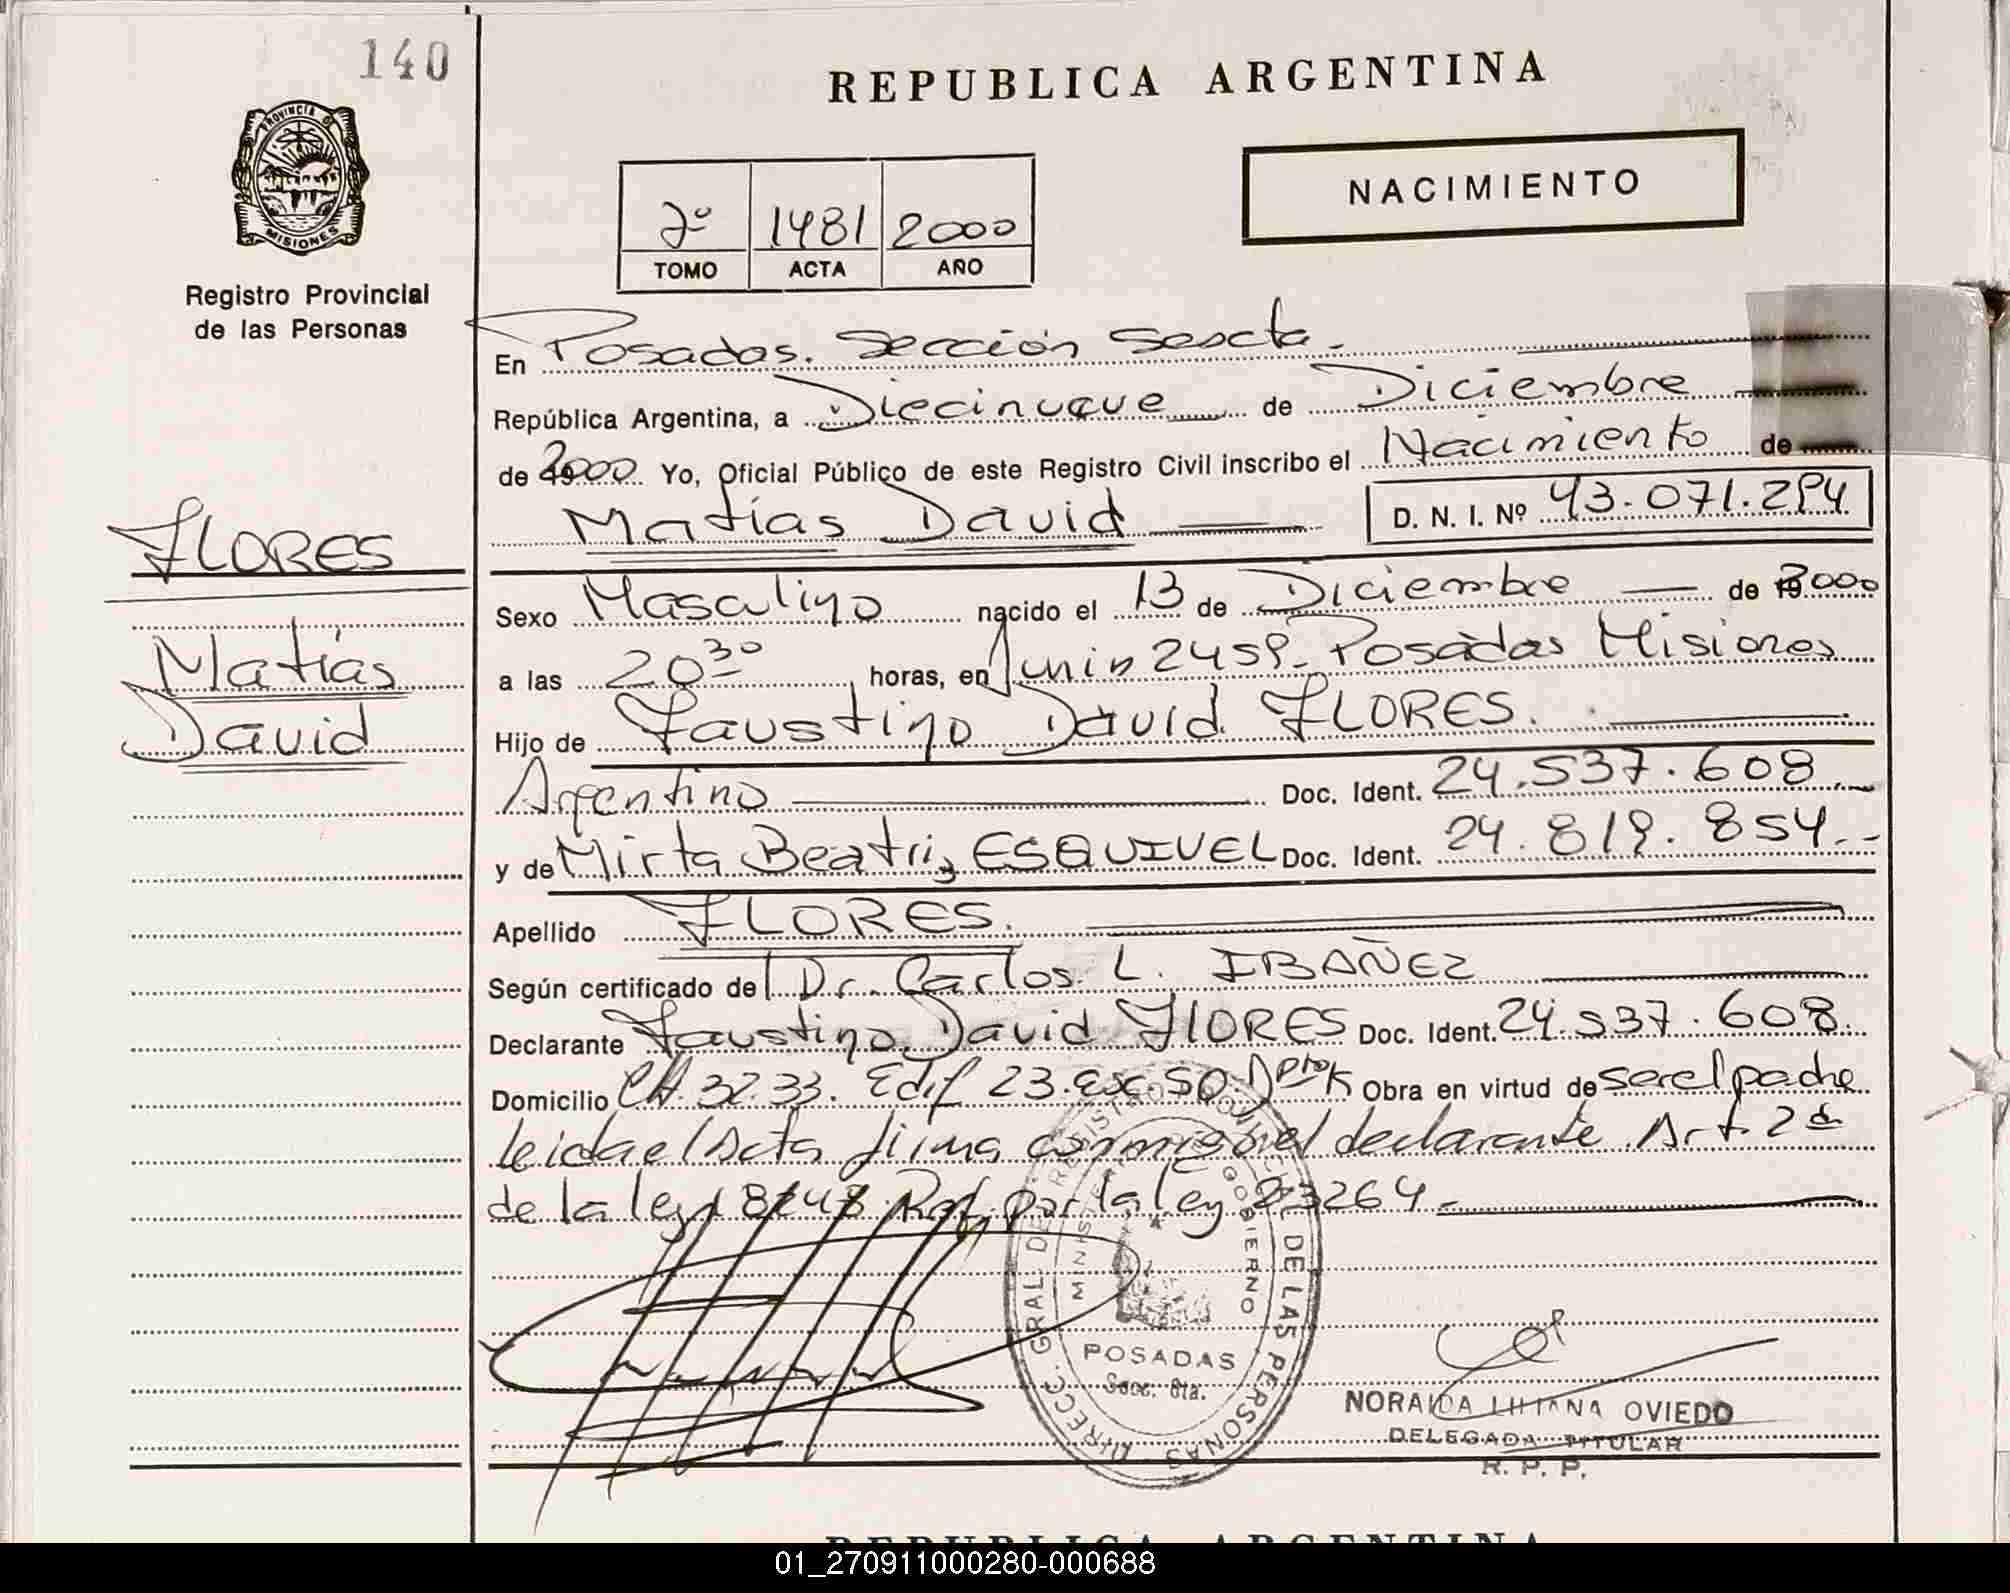 140
REPUBLICA ARGENTINA
PROVINCIA DE
MISIONES
Registro Provincial
de las Personas
NACIMIENTO
2º 1481 2000
TOMO ACTA AÑO
En Posadas. Sección Sexcta.
República Argentina, a Diecinueve de Diciembre
de 2000 Yo, Oficial Público de este Registro Civil inscribo el Nacimiento de
Matías David D. N. I. Nº 43.071.294
FLORES
Matías
David
Sexo Masculino nacido el 13 de Diciembre de 2000
a las 20 30 horas, en Junin 2459. Posadas Misiones
Hijo de Faustino David FLORES.
Argentino Doc. Ident. 24.537.608.
y de Mirta Beatriz ESQUIVEL Doc. Ident. 24.819.854.-
Apellido FLORES.
Según certificado de Dr. Carlos L. IBAÑEZ
Declarante Faustino David FLORES Doc. Ident. 24.537.608.
Domicilio CH. 32.33. Edif 23. Ex 50. Dpto K Obra en virtud de ser el padre
leida el Acta firma conmigo el declarante Art. 2 de
de la ley 8248 Ref. por la ley 23264.-
DIRECC. GRAL. DE REGISTRO PROVINCIAL DE LAS PERSONAS
MINISTERIO GOBIERNO
POSADAS
Secc. 6ta.
NORAIDA LILIANA OVIEDO
DELEGADA TITULAR
R. P. P.
REPUBLICA ARGENTINA
01_270911000280-000688